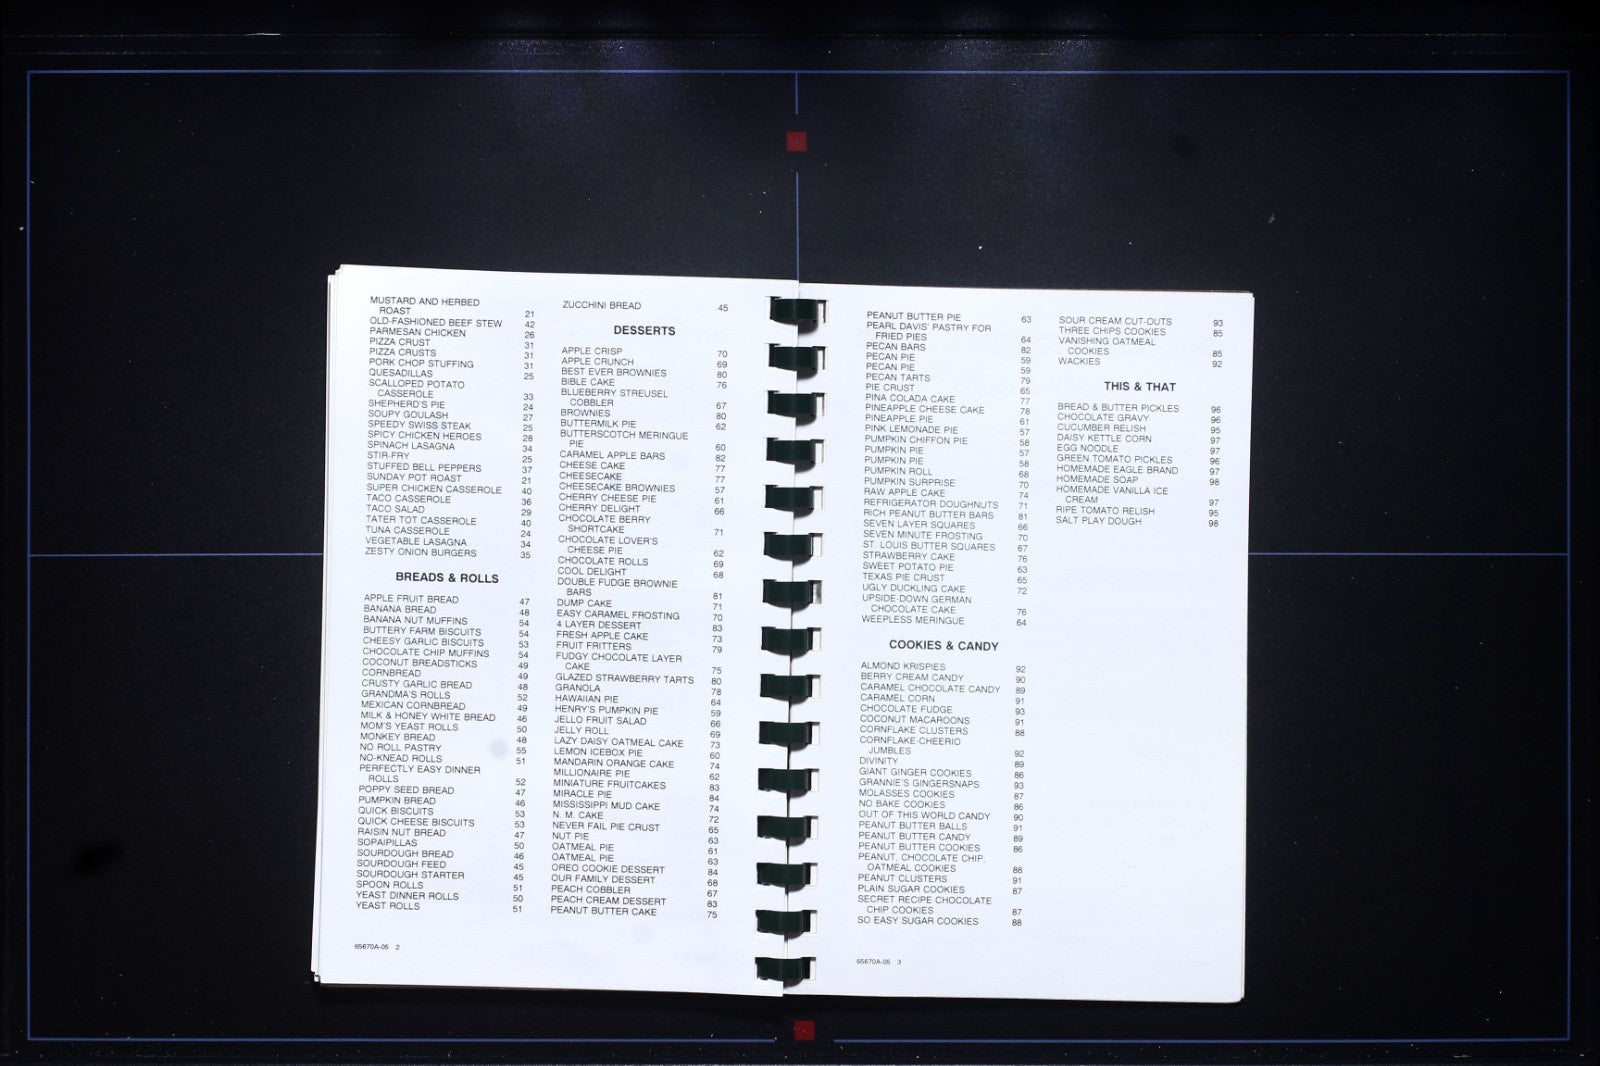 MUSTARD AND HERBED
ROAST 21
OLD-FASHIONED BEEF STEW 42
PARMESAN CHICKEN 26
PIZZA CRUST 31
PIZZA CRUSTS 31
PORK CHOP STUFFING 31
QUESADILLAS 25
SCALLOPED POTATO
CASSEROLE 33
SHEPHERD'S PIE 24
SOUPY GOULASH 27
SPEEDY SWISS STEAK 25
SPICY CHICKEN HEROES 28
SPINACH LASAGNA 34
STIR-FRY 25
STUFFED BELL PEPPERS 37
SUNDAY POT ROAST 21
SUPER CHICKEN CASSEROLE 40
TACO CASSEROLE 36
TACO SALAD 29
TATER TOT CASSEROLE 40
TUNA CASSEROLE 24
VEGETABLE LASAGNA 34
ZESTY ONION BURGERS 35
BREADS & ROLLS
APPLE FRUIT BREAD 47
BANANA BREAD 48
BANANA NUT MUFFINS 54
BUTTERY FARM BISCUITS 54
CHEESY GARLIC BISCUITS 53
CHOCOLATE CHIP MUFFINS 54
COCONUT BREADSTICKS 49
CORNBREAD 49
CRUSTY GARLIC BREAD 48
GRANDMA'S ROLLS 52
MEXICAN CORNBREAD 49
MILK & HONEY WHITE BREAD 46
MOM'S YEAST ROLLS 50
MONKEY BREAD 48
NO ROLL PASTRY 55
NO-KNEAD ROLLS 51
PERFECTLY EASY DINNER
ROLLS 52
POPPY SEED BREAD 47
PUMPKIN BREAD 46
QUICK BISCUITS 53
QUICK CHEESE BISCUITS 53
RAISIN NUT BREAD 47
SOPAIPILLAS 50
SOURDOUGH BREAD 46
SOURDOUGH FEED 45
SOURDOUGH STARTER 45
SPOON ROLLS 51
YEAST DINNER ROLLS 50
YEAST ROLLS 51
65670A-05 2
ZUCCHINI BREAD 45
DESSERTS
APPLE CRISP 70
APPLE CRUNCH 69
BEST EVER BROWNIES 80
BIBLE CAKE 76
BLUEBERRY STREUSEL
COBBLER 67
BROWNIES 80
BUTTERMILK PIE 62
BUTTERSCOTCH MERINGUE
PIE 60
CARAMEL APPLE BARS 82
CHEESE CAKE 77
CHEESECAKE 77
CHEESECAKE BROWNIES 57
CHERRY CHEESE PIE 61
CHERRY DELIGHT 66
CHOCOLATE BERRY
SHORTCAKE 71
CHOCOLATE LOVER'S
CHEESE PIE 62
CHOCOLATE ROLLS 69
COOL DELIGHT 68
DOUBLE FUDGE BROWNIE
BARS 81
DUMP CAKE 71
EASY CARAMEL FROSTING 70
4 LAYER DESSERT 83
FRESH APPLE CAKE 73
FRUIT FRITTERS 79
FUDGY CHOCOLATE LAYER
CAKE 75
GLAZED STRAWBERRY TARTS 80
GRANOLA 78
HAWAIIAN PIE 64
HENRY'S PUMPKIN PIE 59
JELLO FRUIT SALAD 66
JELLY ROLL 69
LAZY DAISY OATMEAL CAKE 73
LEMON ICEBOX PIE 60
MANDARIN ORANGE CAKE 74
MILLIONAIRE PIE 62
MINIATURE FRUITCAKES 83
MIRACLE PIE 84
MISSISSIPPI MUD CAKE 74
N. M. CAKE 72
NEVER FAIL PIE CRUST 65
NUT PIE 63
OATMEAL PIE 61
OATMEAL PIE 63
OREO COOKIE DESSERT 84
OUR FAMILY DESSERT 68
PEACH COBBLER 67
PEACH CREAM DESSERT 83
PEANUT BUTTER CAKE 75
PEANUT BUTTER PIE 63
PEARL DAVIS' PASTRY FOR
FRIED PIES 64
PECAN BARS 82
PECAN PIE 59
PECAN PIE 59
PECAN TARTS 79
PIE CRUST 65
PINA COLADA CAKE 77
PINEAPPLE CHEESE CAKE 78
PINEAPPLE PIE 61
PINK LEMONADE PIE 57
PUMPKIN CHIFFON PIE 58
PUMPKIN PIE 57
PUMPKIN PIE 58
PUMPKIN ROLL 68
PUMPKIN SURPRISE 70
RAW APPLE CAKE 74
REFRIGERATOR DOUGHNUTS 71
RICH PEANUT BUTTER BARS 81
SEVEN LAYER SQUARES 66
SEVEN MINUTE FROSTING 70
ST. LOUIS BUTTER SQUARES 67
STRAWBERRY CAKE 76
SWEET POTATO PIE 63
TEXAS PIE CRUST 65
UGLY DUCKLING CAKE 72
UPSIDE-DOWN GERMAN
CHOCOLATE CAKE 76
WEEPLESS MERINGUE 64
COOKIES & CANDY
ALMOND KRISPIES 92
BERRY CREAM CANDY 90
CARAMEL CHOCOLATE CANDY 89
CARAMEL CORN 91
CHOCOLATE FUDGE 93
COCONUT MACAROONS 91
CORNFLAKE CLUSTERS 88
CORNFLAKE-CHEERIO
JUMBLES 92
DIVINITY 89
GIANT GINGER COOKIES 86
GRANNIE'S GINGERSNAPS 93
MOLASSES COOKIES 87
NO BAKE COOKIES 86
OUT OF THIS WORLD CANDY 90
PEANUT BUTTER BALLS 91
PEANUT BUTTER CANDY 89
PEANUT BUTTER COOKIES 86
PEANUT, CHOCOLATE CHIP,
OATMEAL COOKIES 88
PEANUT CLUSTERS 91
PLAIN SUGAR COOKIES 87
SECRET RECIPE CHOCOLATE
CHIP COOKIES 87
SO EASY SUGAR COOKIES 88
65670A-05 3
SOUR CREAM CUT-OUTS 93
THREE CHIPS COOKIES 85
VANISHING OATMEAL
COOKIES 85
WACKIES 92
THIS & THAT
BREAD & BUTTER PICKLES 96
CHOCOLATE GRAVY 96
CUCUMBER RELISH 95
DAISY KETTLE CORN 97
EGG NOODLE 97
GREEN TOMATO PICKLES 96
HOMEMADE EAGLE BRAND 97
HOMEMADE SOAP 98
HOMEMADE VANILLA ICE
CREAM 97
RIPE TOMATO RELISH 95
SALT PLAY DOUGH 98